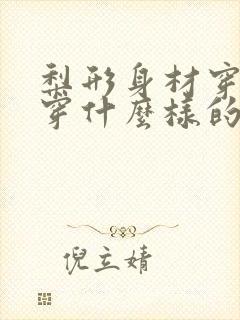 梨形身材穿
穿什麼樣的
倪立婧